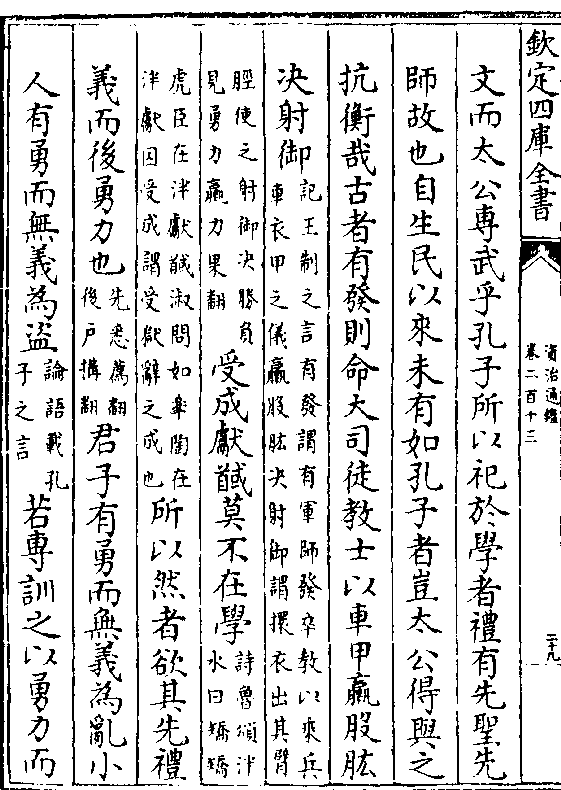 欽定四庫全書
資治通鑑
卷二百十三
二十九
文而太公專武乎孔子所以祀於學者禮有先聖先
師故也自生民以來未有如孔子者豈太公得與之
抗衡哉古者有發則命大司徒教士以車甲贏股肱
决射御記王制之言有發謂有軍師發卒教以乘兵
車衣甲之儀贏股肱决射御謂擐衣出其臂
脛使之射御决勝負
見勇力贏力果翻受成獻馘莫不在學詩魯頌泮
水曰矯矯
虎臣在泮獻馘淑問如皋陶在
泮獻囚受成謂受獄辭之成也所以然者欲其先禮
義而後勇力也先悉薦翻
後戶搆翻君子有勇而無義為亂小
人有勇而無義為盜論語載孔
子之言若專訓之以勇力而